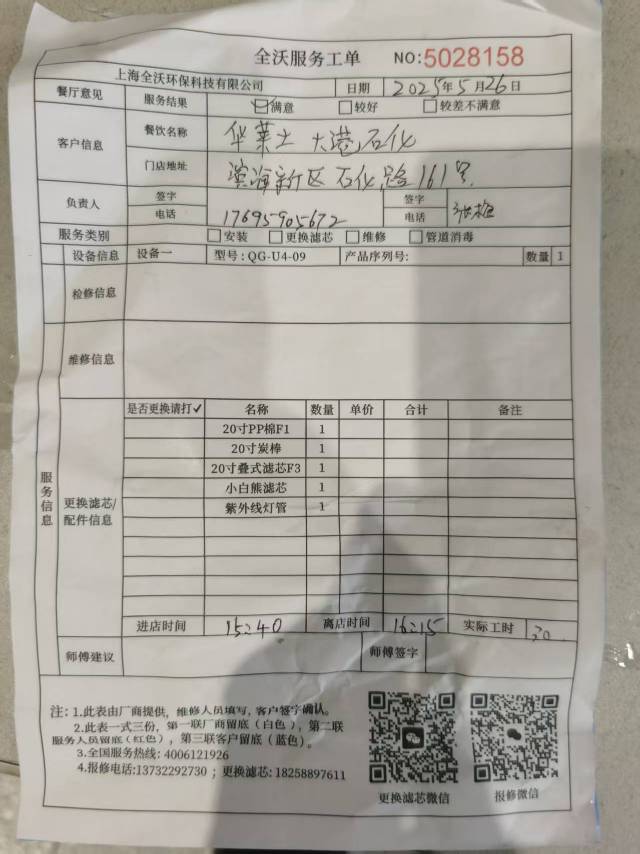 全沃服务工单 NO:5028158
上海全沃环保科技有限公司 日期 2025年5月26日
餐厅意见 服务结果 ☑满意 □较好 □较差不满意
客户信息 餐饮名称 华莱士 大港石化
门店地址 滨海新区 石化路161号
负责人 签字 签字
电话 17695905672 电话
服务类别 □安装 □更换滤芯 □维修 □管道消毒
设备信息 设备一 型号:QG-U4-09 产品序列号: 数量 1
检修信息
维修信息
服务信息
更换滤芯/配件信息
是否更换请打✓ 名称 数量 单价 合计 备注
20寸PP棉F1 1
20寸炭棒 1
20寸叠式滤芯F3 1
小白熊滤芯 1
紫外线灯管 1
进店时间 15:40 离店时间 16:15 实际工时 30
师傅建议 师傅签字
注: 1.此表由厂商提供, 维修人员填写, 客户签字确认。
2.此表一式三份, 第一联厂商留底 (白色), 第二联
服务人员留底(红色), 第三联客户留底 (蓝色)。
3.全国服务热线: 4006121926
4.报修电话:13732292730 ; 更换滤芯: 18258897611
更换滤芯微信 报修微信